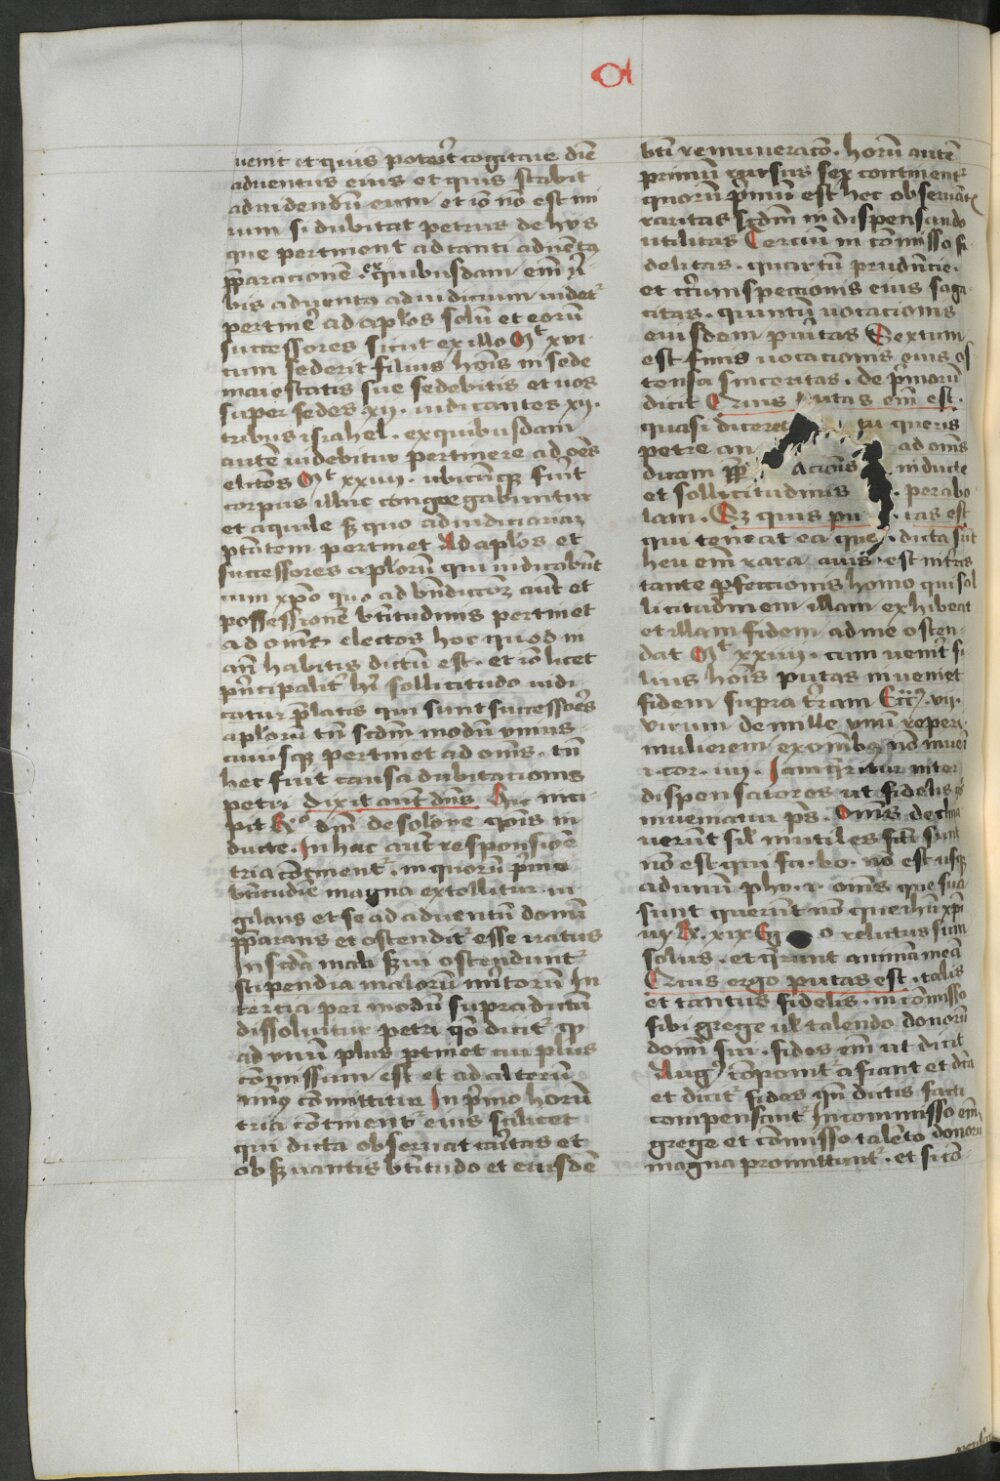 uenit et quis poterit cogitare diē
aduentus eius et quis stabit
ad uidendū eum et iō nō est mi
rum si dubitat petrus de hys
que pertinent ad tanti aduentꝯ
p̄paracionē . ex quibusdam em̄ v̄
bis aduentꝯ ad iudicium uidetʳ
pertinē ad aplos solū et eorū
successores sicut ex illo Mᵗ xvi
cum sederit filius hoīs in sede
maiestatis sue sedebitis et uos
super sedes xij . iudicantes xij .
tribus israhel . ex quibusdam
autē uidebitur pertinere ad oēs
elc̄tos Mᵗ xxiiij . ubicūqꝫ fūit
corpus illuc congregabuntur
et aquile sꝫ quo ad iudiciariaꝫ
ptātem pertinet Ad aplos et
successores aplorū qui iudicabūt
cum xp̄o quo ad bn̄dictōꝫ aūt et
possessionē btītudinis pertinet
ad om̄s electos hoc quod in
an̄ habitis dictū est . et iō licet
p̄ncipalit̄ hꝰ sollicitudo iudi
catur p̄latis qui sunt successores
aplorū tn̄ scdm̄ modū vnius
cuiusqꝫ pertinet ad om̄s . tn̄
hec fuit causa dubitacionis
petri dixit aut̄ dn̄s Hic inci
pit Rꝰ dn̄i de solōne q̄onis in
ducte . In hac aut̄ responsiōe
tria cōtinentʳ . in quorū p̄mo
btītudīe magna extollitur ui
gilans et se ad aduentū domī
p̄parans et ostenditʳ esse ratus
In scd̄a mali s̄ui ostenduntʳ
stipendia malorū m̄itorū In
tercia per modū supradictū
dissoluitur petri q̄o dicitʳ qꝫ
ad vnū plus p̄tinet cui plus
cōmissum est et ad alterū
minꝰ cōmittitur In p̄mo horū
tria cōtinentʳ eius scilicet
qui dicta obseruat raritas et
obs̄uantis btītudo et eiusdē
btī remuneracō . horū autē
primū rursus sex continentʳ
quorū p̄mū est hec obseruātꝭ
raritas scdm̄ in dispensando
utilitas Terciū in cōmisso fi
delitas . quartū prudn̄cie
et circumspeccionis eius saga
citas . quintū uocacionis
eiusdem puritas Sextum
est finis uocacionis eius os
tensa sinceritas . de p̄morū
dicit Quis putas em̄ est .
quasi diceret tu queris
petre an ad om̄s
dicam acionis inducte
et sollicitudinis . parabo
lam . Sꝫ quis pu tas est
qui teneat ea que dicta sūt
heu em̄ rara auis . est
tante perfeccionis homo qui sol
licitudinem illam exhibeat
et illam fidem ad me osten
dat Mᵗ xxiiij . cum uenit̄ fi
lius hoīs putas inueniet
fidem supra t̄ram Ecciꝰ . vij .
virum de mille vnū reperi .
mulierem ex om̄ibꝫ nō inueī
i . cor . iiij . Iam q̄ritur inter
dispensatores ut fidelis
inueniatur p̄s . Om̄s declina
uerūt sīl inutiles fc̄i sunt
nō est qui fa . bo . nō est usqꝫ
ad unū phy . ij . om̄s que sua
sunt querūt nō que ihū xp̄i
iij Rx . xix Eg o relictus sum
solus . et q̄runt animā meā
Quis ergo putas est . talis
et tantus fidelis . in cōmisso
sibi grege uł talendo donorū
domī sui . fides em̄ ut dicit
Augꝰ cōponitʳ a fiant et dc̄a
et dicitʳ fides qn̄ dictis facti
compensantʳ In commisso em̄
grege et cōmisso talēto donorū
magna promittuntʳ . et si cō